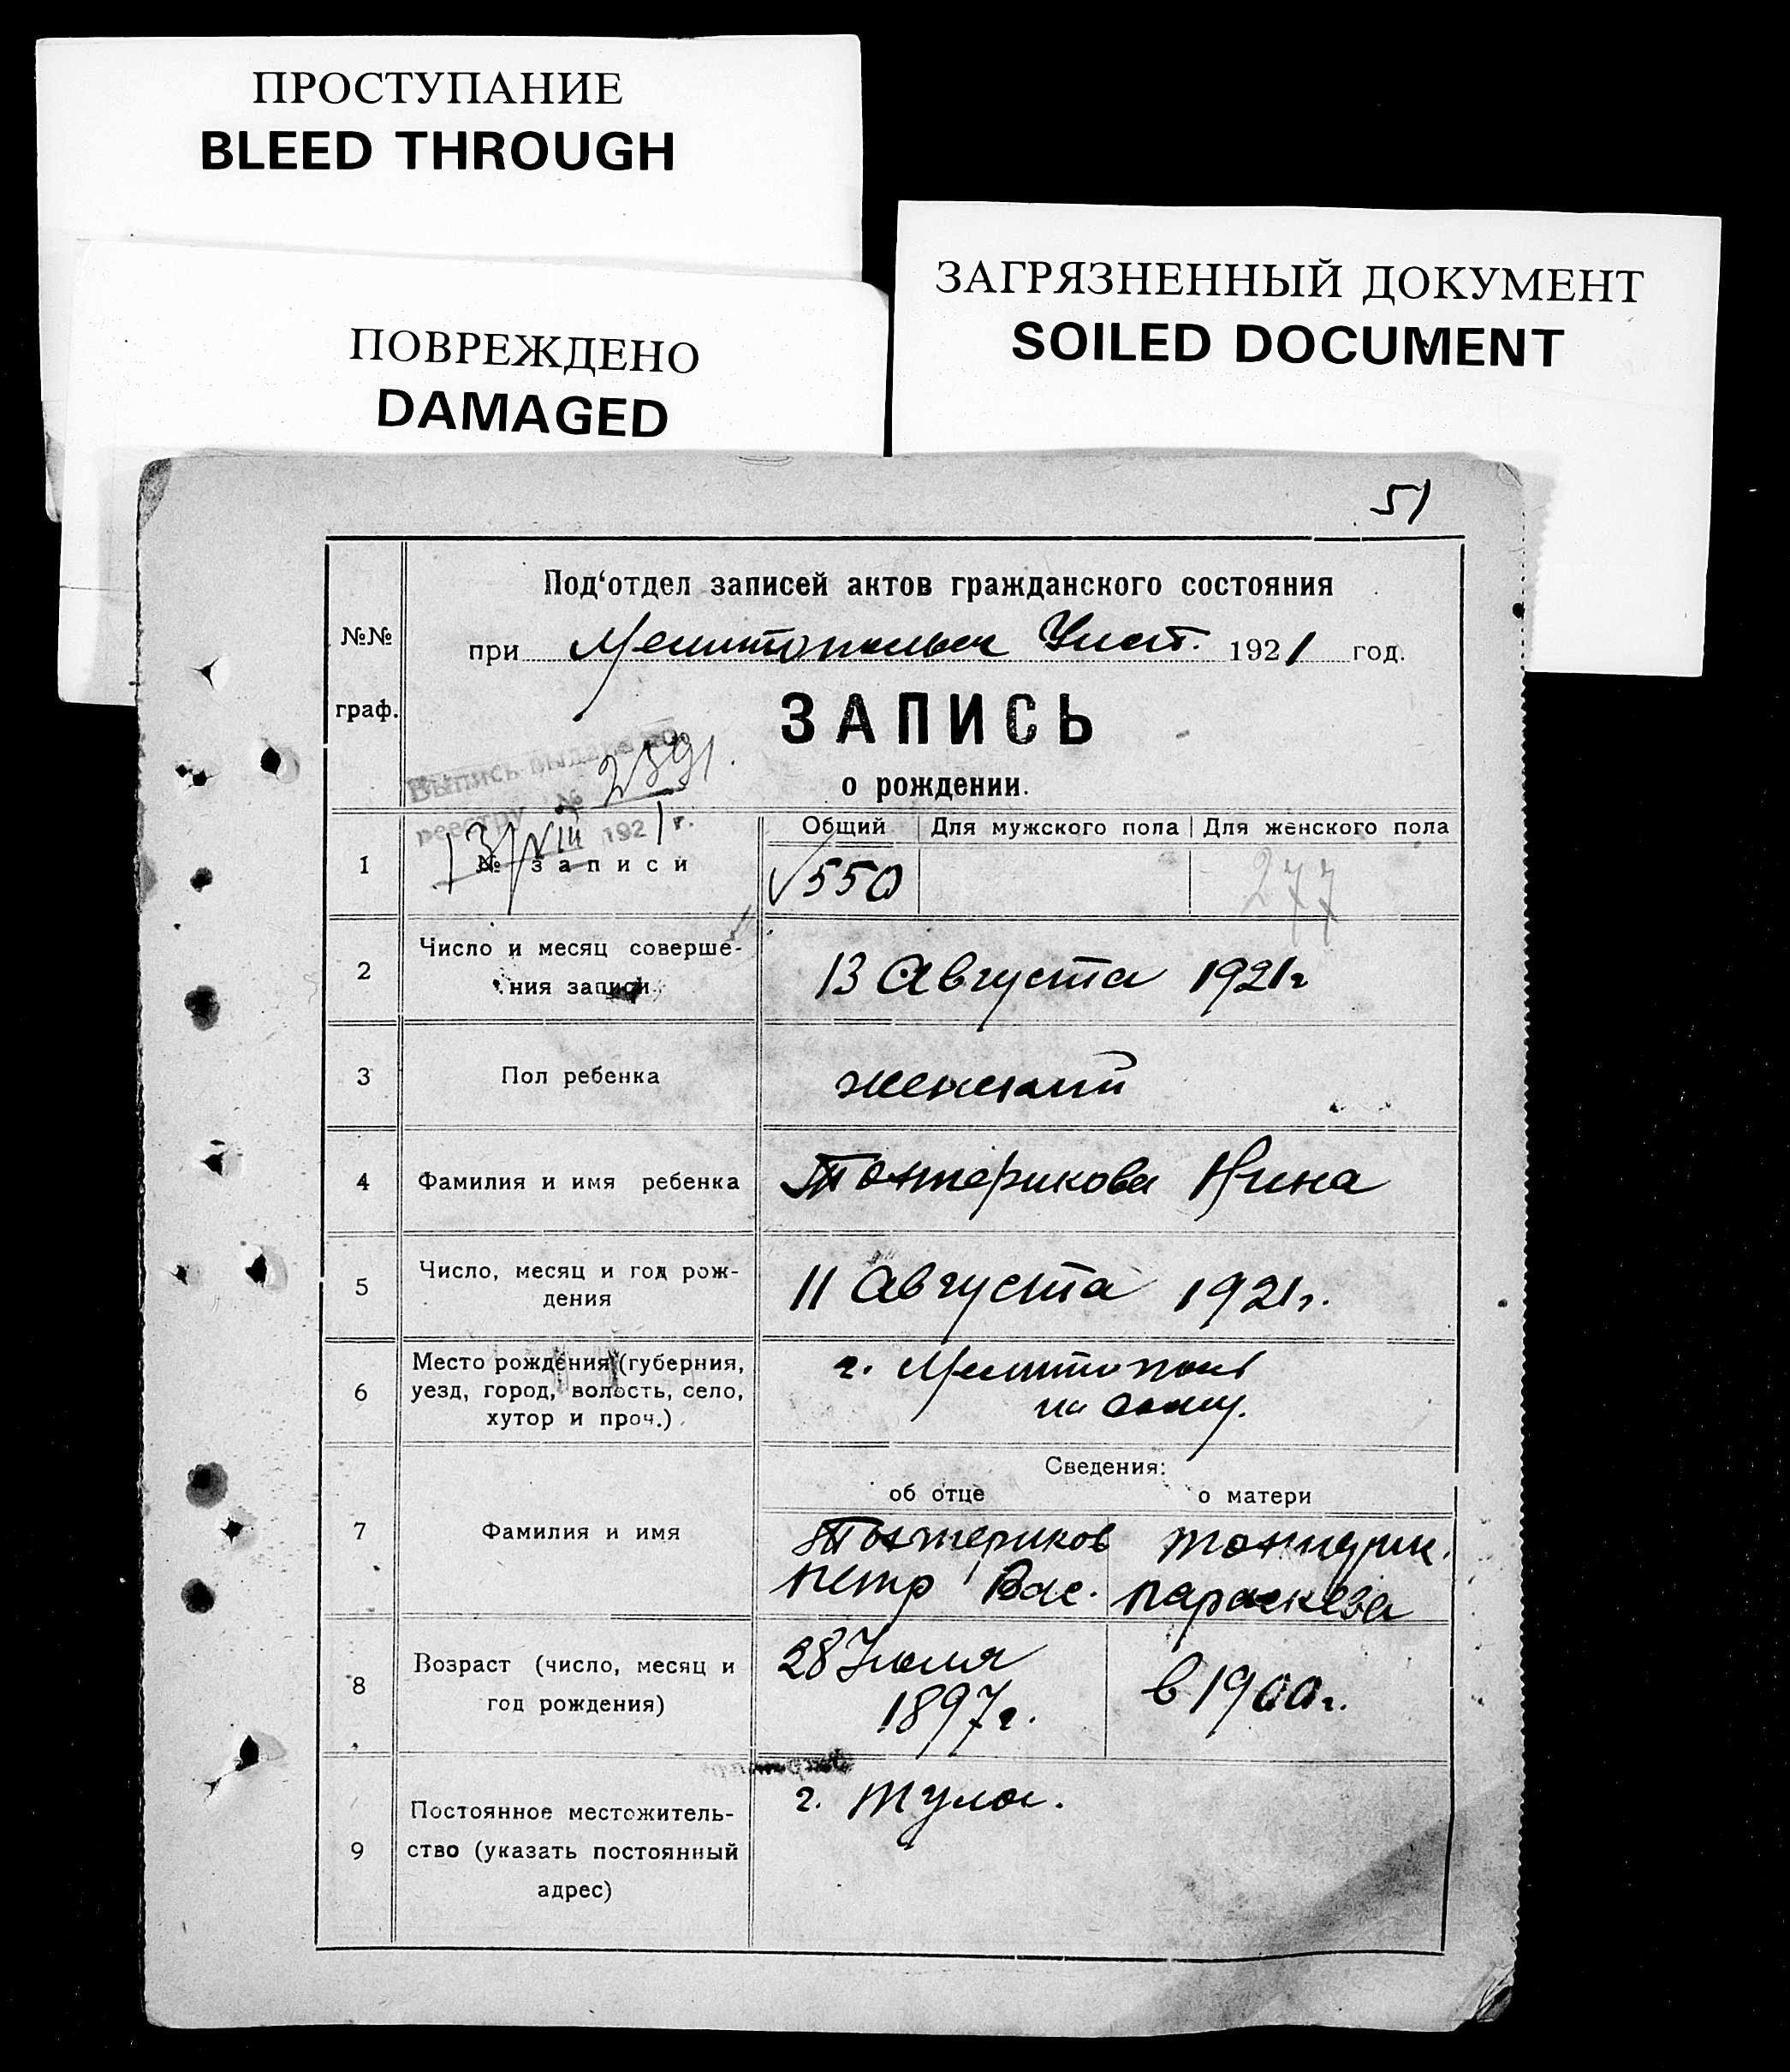 ПРОСТУПАНИЕ
BLEED THROUGH
ПОВРЕЖДЕНО
DAMAGED
ЗАГРЯЗНЕННЫЙ ДОКУМЕНТ
SOILED DOCUMENT
51
Под‘отдел записей актов гражданского состояния
№№
граф.
при 1921 год.
ЗАПИСЬ
о рождении.
Выпись выдана по
реестру № 2391.
13/VIII 1921 г.
1
№ записи
Общий Для мужского пола Для женского пола
550 277
2
Число и месяц соверше-
ния записи.
13 Августа 1921г
3
Пол ребенка
женский
4
Фамилия и имя ребенка
Нина
5
Число, месяц и год рож-
дения
11 Августа 1921г.
6
Место рождения (губерния,
уезд, город, волость, село,
хутор и проч.)
г. Мелитополь
на дому.
Сведения:
об отце о матери
7
Фамилия и имя
Петр Вас. Параскева
8
Возраст (число, месяц и
год рождения)
28 Июля
1897г.
в 1900г.
9
Постоянное местожитель-
ство (указать постоянный
адрес)
г. Тула.